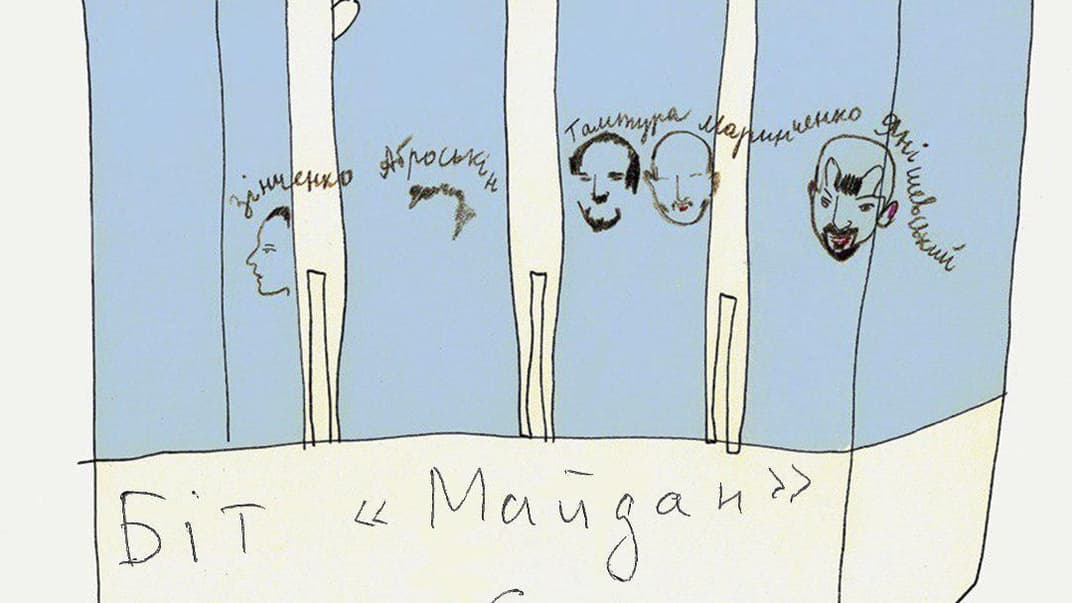 Зінченко
Аброськін
Гамтура
Маринченко
Янішевський
Біт «Майдан»